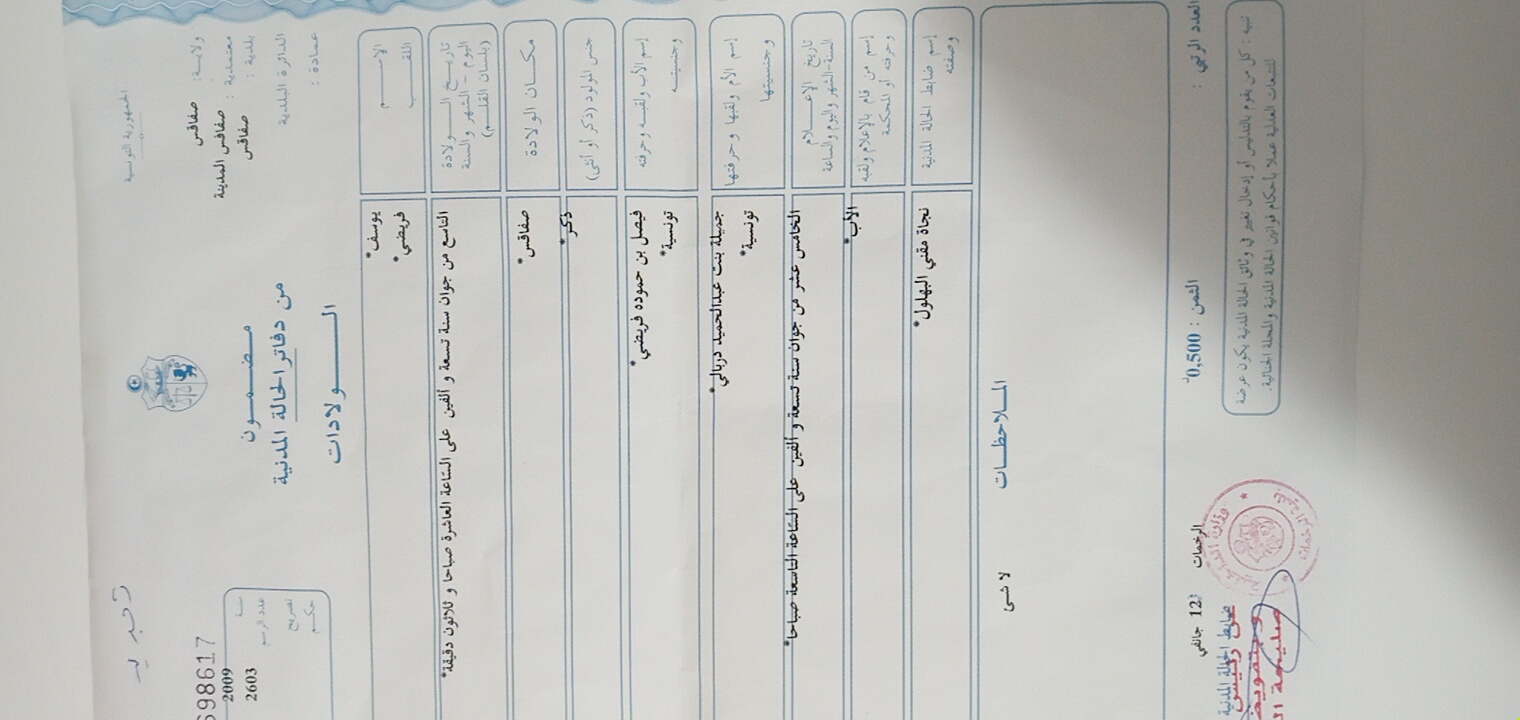 الجمهورية التونسية
ولاية: صفاقس
معتمدية : صفاقس المدينة
بلدية : صفاقس
الدائرة البلدية
عمادة :
مضمون
من دفاتر الحالة المدنية
الولادات
698617
سنة 2009
عدد الرسم 2603
تصريح
حكم
الاسم
اللقب
يوسف*
فريضي*
تاريخ الولادة
اليوم - الشهر والسنة
(بلسان القلم)
التاسع من جوان سنة تسعة و ألفين على الساعة العاشرة صباحا و ثلاثون دقيقة*
مكان الولادة
صفاقس*
جنس المولود (ذكر أو أنثى)
ذكر*
إسم الأب ولقبه وحرفته
وجنسيته
فيصل بن حموده فريضي*
تونسية*
إسم الأم ولقبها وحرفتها
وجنسيتها
جميلة بنت عبدالحميد دربالي*
تونسية*
تاريخ الإعلام
السنة-الشهر واليوم والساعة
الخامس عشر من جوان سنة تسعة و ألفين على الساعة التاسعة صباحا*
إسم من قام بالإعلام ولقبه
وحرفته أو المحكمة
الأب*
إسم ضابط الحالة المدنية
وصفته
نجاة مقني البهلول*
الملاحظات
لا شئ
العدد الرتبي :
الثمن : 0,500د
الرخمات
12 جانفي
ضابط الحالة المدنية
تنبيه : كل من يقوم بالتدليس أو إدخال تغيير في وثائق الحالة المدنية يكون عرضة
للتتبعات العدلية عملا بأحكام قوانين الحالة المدنية والمجلة الجنائية.